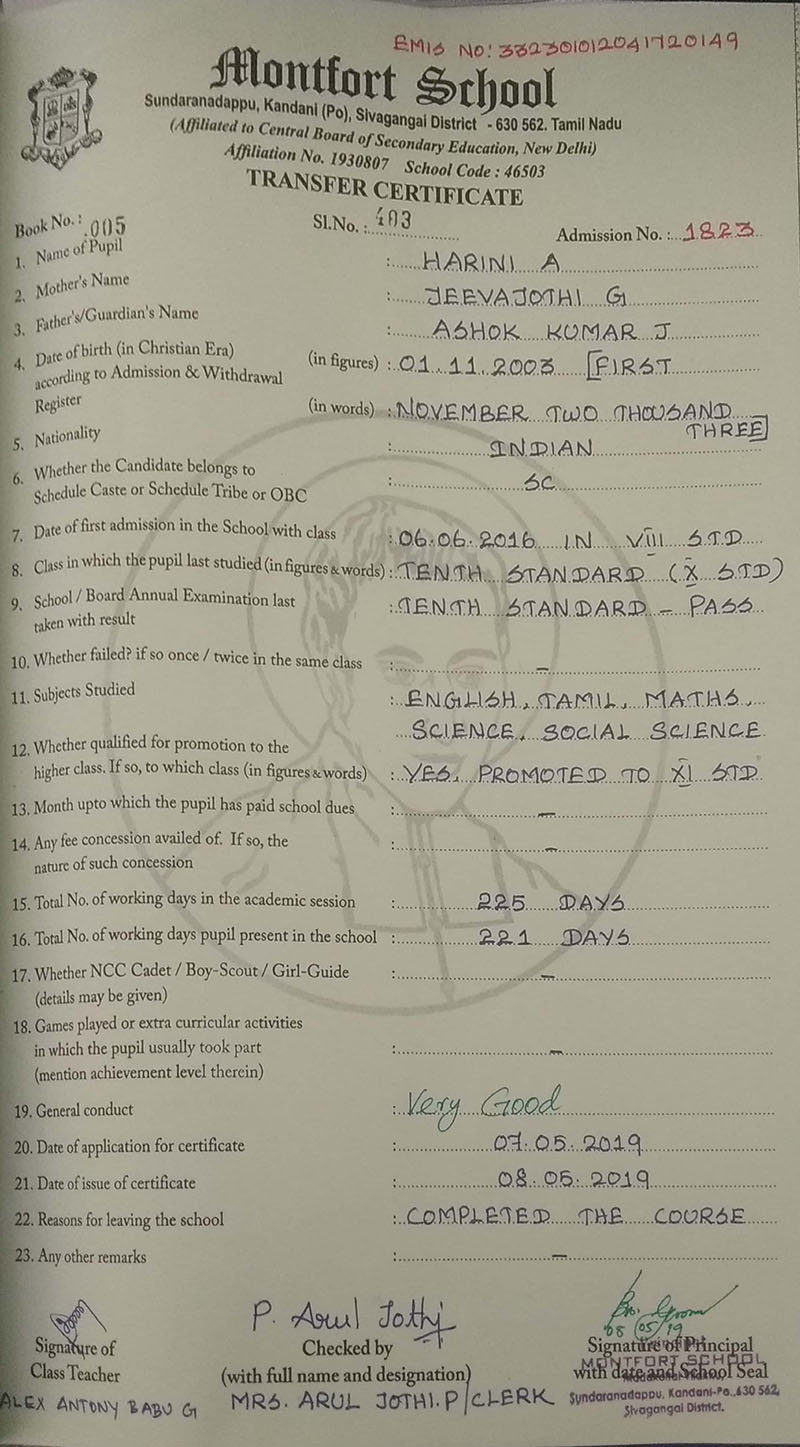 EMIS NO: 332301012041720149
Montfort School
Sundaranadappu, Kandani (Po), Sivagangai District - 630 562. Tamil Nadu
(Affiliated to Central Board of Secondary Education, New Delhi)
Affiliation No. 1930807 School Code : 46503
TRANSFER CERTIFICATE
Book No. : 005 Sl.No. : 403 Admission No. : 1823
1. Name of Pupil : HARINI A
2. Mother's Name : JEEVAJOTHI G
3. Father's/Guardian's Name : ASHOK KUMAR J
4. Date of birth (in Christian Era) (in figures) : 01.11.2003 [FIRST
according to Admission & Withdrawal
Register (in words) : NOVEMBER TWO THOUSAND
THREE]
5. Nationality : INDIAN
6. Whether the Candidate belongs to
Schedule Caste or Schedule Tribe or OBC : SC
7. Date of first admission in the School with class : 06.06.2016 IN VIII STD
8. Class in which the pupil last studied (in figures & words) : TENTH STANDARD (X STD)
9. School / Board Annual Examination last : TENTH STANDARD - PASS
taken with result
10. Whether failed? if so once / twice in the same class : -
11. Subjects Studied : ENGLISH, TAMIL, MATHS,
SCIENCE, SOCIAL SCIENCE
12. Whether qualified for promotion to the
higher class. If so, to which class (in figures & words) : YES, PROMOTED TO XI STD
13. Month upto which the pupil has paid school dues : -
14. Any fee concession availed of. If so, the : -
nature of such concession
15. Total No. of working days in the academic session : 225 DAYS
16. Total No. of working days pupil present in the school : 221 DAYS
17. Whether NCC Cadet / Boy-Scout / Girl-Guide : -
(details may be given)
18. Games played or extra curricular activities
in which the pupil usually took part : -
(mention achievement level therein)
19. General conduct : Very Good
20. Date of application for certificate : 07.05.2019
21. Date of issue of certificate : 08.05.2019
22. Reasons for leaving the school : COMPLETED THE COURSE
23. Any other remarks : -
P. Arul Jothi
08/05/19
Signature of Checked by Signature of Principal
Class Teacher (with full name and designation) with date and School Seal
MONTFORT SCHOOL
ALEX ANTONY BABU G MRS. ARUL JOTHI.P/CLERK
Sundaranadappu, Kandani-Po.,630 562,
Sivagangai District.